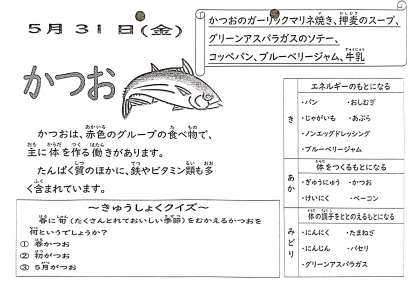 5月31日(金)
かつおのガーリックマリネ焼き、押麦のスープ、
グリーンアスパラガスのソテー、
コッペパン、ブルーベリージャム、牛乳
かつお
かつおは、赤色のグループの食べ物で、
主に体を作る働きがあります。
たんぱく質のほかに、鉄やビタミン類も多
く含まれています。
~きゅうしょくクイズ~
春に旬(たくさんとれておいしい季節)をむかえるかつおを
何というでしょうか?
① 春かつお
② 初がつお
③ 5月がつお
き
エネルギーのもとになる
・パン ・おしむぎ
・じゃがいも ・あぶら
・ノンエッグドレッシング
・ブルーベリージャム
あか
体をつくるもとになる
・ぎゅうにゅう ・かつお
・けいにく ・ベーコン
みどり
体の調子をととのえるもとになる
・にんにく ・たまねぎ
・にんじん ・パセリ
・グリーンアスパラガス